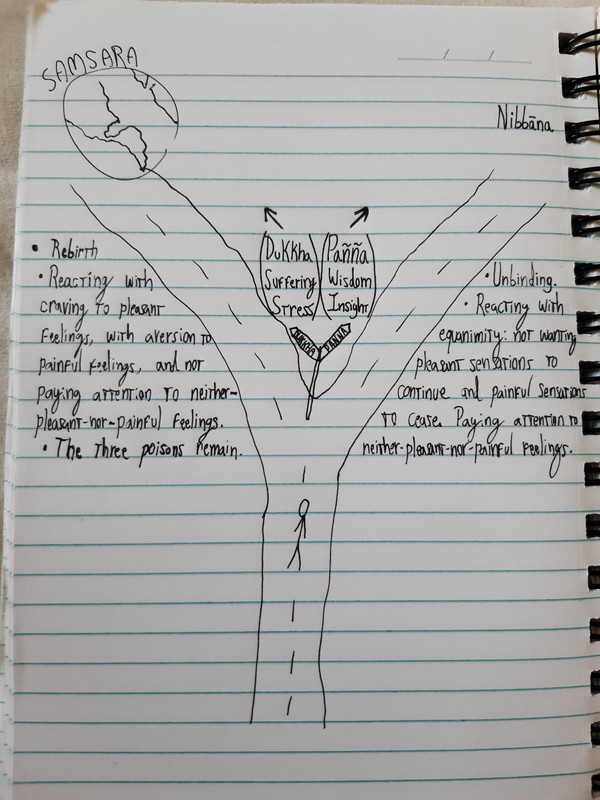 SAMSARA
Nibbāna
DuKKha
Suffering
Stress
Pañña
Wisdom
Insight
DUKKHA
PAÑÑA
• Rebirth
• Reacting with
craving to pleasant
feelings, with aversion to
painful feelings, and not
paying attention to neither-
pleasant-nor-painful feelings.
• The Three poisons remain.
• Unbinding.
• Reacting with
equanimity: not wanting
pleasant sensations to
continue and painful sensations
to cease. Paying attention to
neither-pleasant-nor-painful feelings.